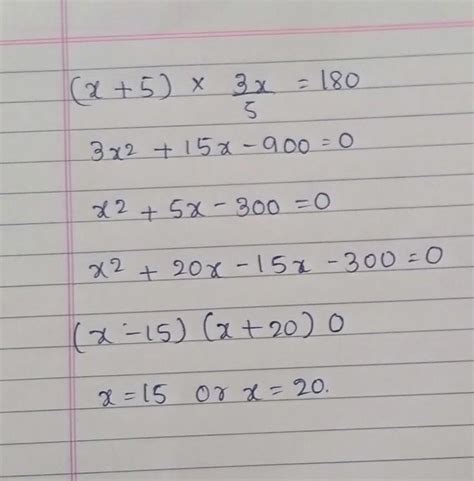 (x + 5) × 3x/5 = 180
3x2 + 15x - 900 = 0
x2 + 5x - 300 = 0
x2 + 20x - 15x - 300 = 0
(x - 15) (x + 20) 0
x = 15 or x = 20.